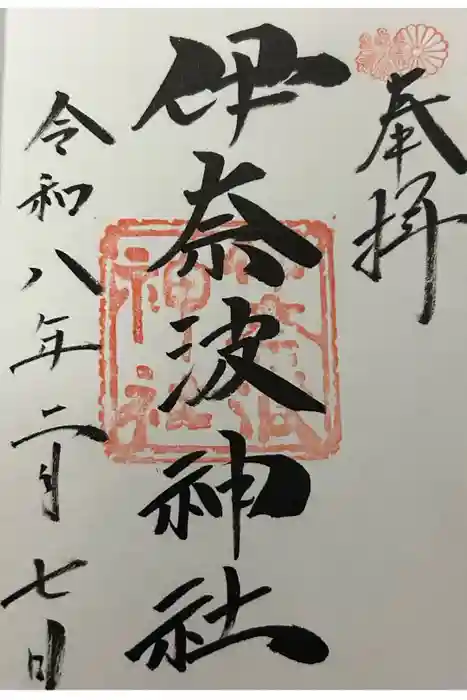 奉拝
伊奈波神社
令和八年二月七日